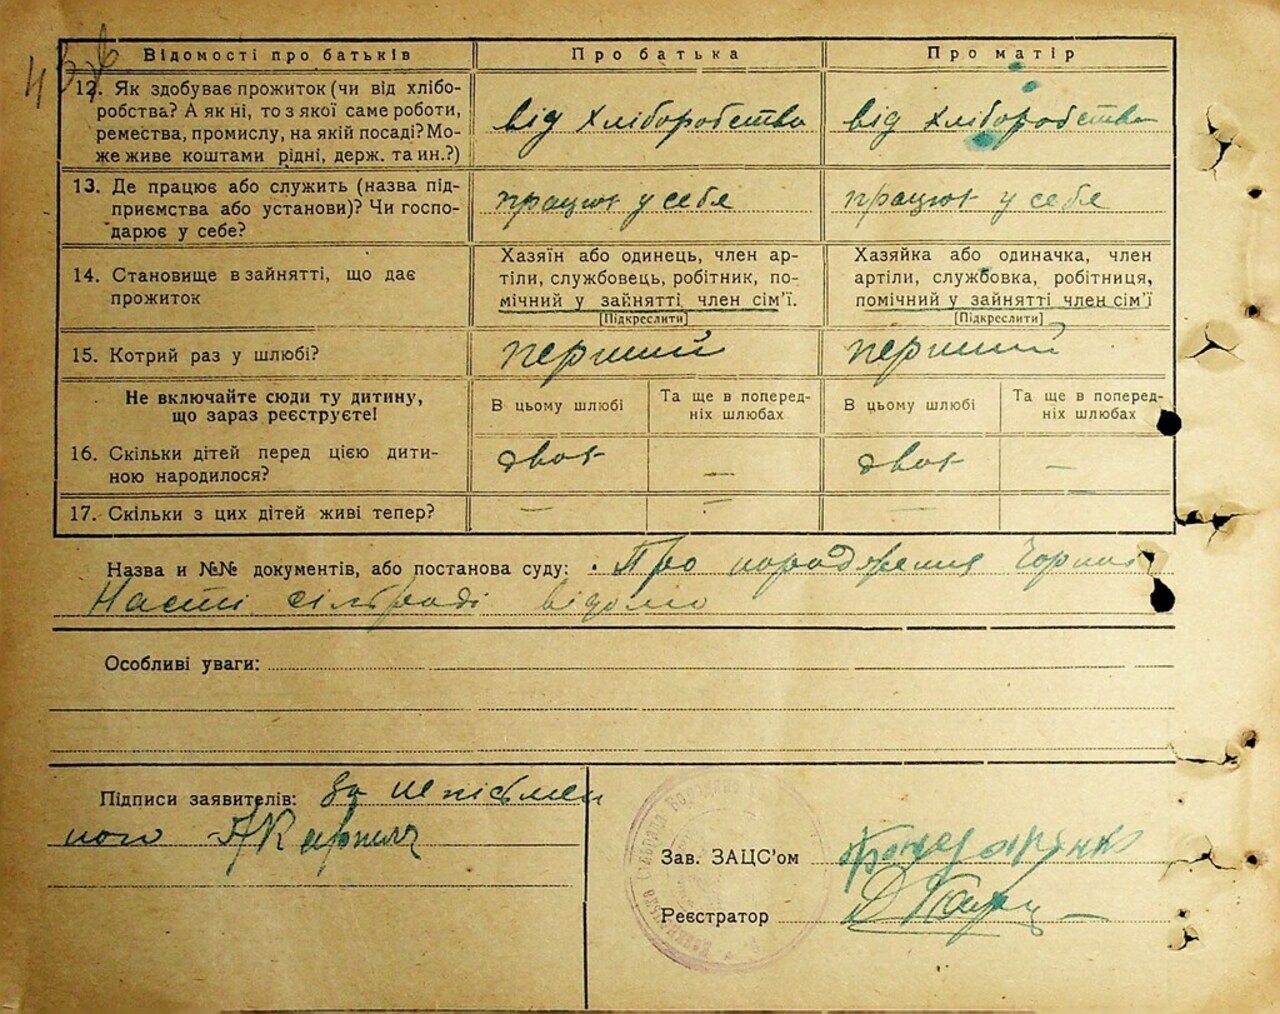 Відомості про батьків
Про батька
Про матір
12. Як здобуває прожиток (чи від хлібо-
робства? А як ні, то з якої саме роботи,
ремества, промислу, на якій посаді? Мо-
же живе коштами рідні, держ. та ин.?)
від хліборобства
від хліборобства
13. Де працює або служить (назва під-
приємства або установи)? Чи госпо-
дарює у себе?
працює у себе
працює у себе
14. Становище в зайнятті, що дає
прожиток
Хазяїн або одинець, член ар-
тіли, службовець, робітник, по-
мічний у зайнятті член сім'ї.
[Підкреслити]
Хазяйка або одиначка, член
артіли, службовка, робітниця,
помічний у зайнятті член сім'ї
[Підкреслити]
15. Котрий раз у шлюбі?
перший
перший
Не включайте сюди ту дитину,
що зараз реєструєте!
В цьому шлюбі
Та ще в поперед-
ніх шлюбах
В цьому шлюбі
Та ще в поперед-
ніх шлюбах
16. Скільки дітей перед цією дити-
ною народилося?
двоє
—
двоє
—
17. Скільки з цих дітей живі тепер?
—
—
—
Назва и №№ документів, або постанова суду: Про народження Чорної
Насті сільраді відомо
Особливі уваги:
Підписи заявителів: За неписьмен
ного
Зав. ЗАЦС'ом
Реєстратор